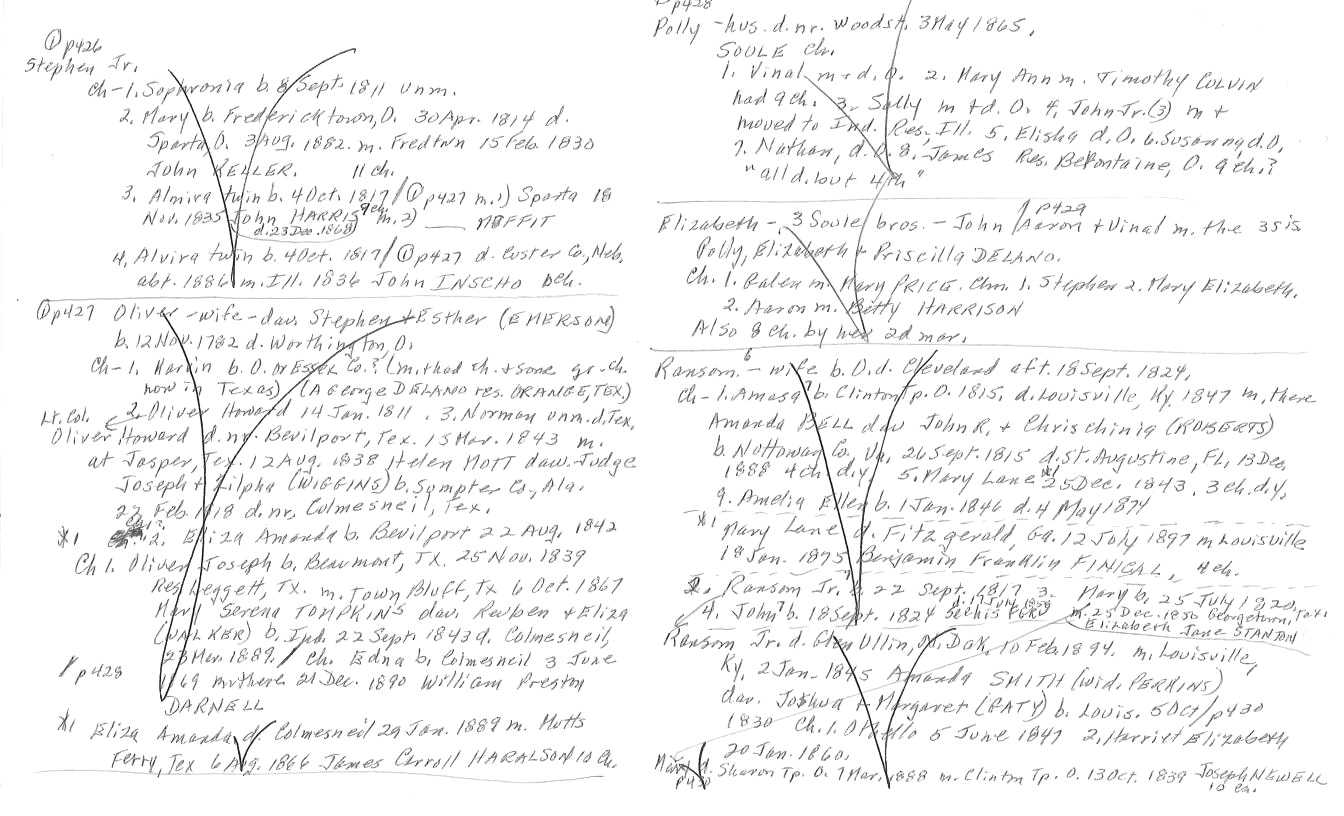 ① p426
Stephen Jr.
Ch-1. Sophronia b. 8 Sept. 1811 unm.
2. Mary b. Fredericktown, O. 30 Apr. 1814 d.
Sparta, O. 3 Aug. 1882. m. Fredtwn 15 Feb. 1830
John KELLER. 11 ch.
3. Almira twin b. 4 Oct. 1817/① p427 m. 1) Sparta 18
Nov. 1835 John HARRIS 9ch. m. 2) ___ MOFFIT
d. 23 Dec. 1868
4. Alvira twin b. 4 Oct. 1817/① p427 d. Custer Co., Neb.
abt. 1886 m. Ill. 1836 John INSCHO ch.
① p427 Oliver - wife - dau. Stephen + Esther (EMERSON)
b. 12 Nov. 1782 d. Worthington, O.
Ch-1. Marvin b. O. or Essex Co.? (m. + had ch. + some gr. ch.
now in Texas) (A George DELANO res. ORANGE, TEX.)
Lt. Col. 2. Oliver Howard 14 Jan. 1811. 3. Norman unm. d. Tex.
Oliver Howard d. nr. Bevilport, Tex. 15 Mar. 1843 m.
at Jasper, Tex. 12 Aug. 1838 Helen MOTT dau. Judge
Joseph + Zilpha (WIGGINS) b. Sumpter Co., Ala.
22 Feb. 1818 d. nr. Colmesneil, Tex.
*1 2. Eliza Amanda b. Bevilport 22 Aug. 1842
Ch 1. Oliver Joseph b. Beaumont, TX. 25 Nov. 1839
Res. Leggett, TX. m. Town Bluff, TX 6 Oct. 1867
Mary Serena TOMPKINS dau. Reuben + Eliza
(WALKER) b. Ind. 22 Sept. 1843 d. Colmesneil,
23 Mar. 1889. / Ch. Edna b. Colmesneil 3 June
/p428 1869 m. there 21 Dec. 1890 William Preston
DARNELL
*1 Eliza Amanda d. Colmesneil 29 Jan. 1889 m. Motts
Ferry, Tex 6 Aug. 1866 James Carroll HARALSON 10 ch.
① p428
Polly - hus. d. nr. Woodst. 3 May 1865.
SOULE ch.
1. Vinal m + d. O. 2. Mary Ann m. Timothy COLVIN
had 9 ch. 3. Sally m + d. O. 4. John Jr. (3) m +
moved to Ind. Res. Ill. 5. Elisha d. O. 6. Susanna, d. O.
7. Nathan, d. O. 8. James Res. Befontaine, O. 9 ch.?
"all d. but 4th"
Elizabeth - 3 Soule bros. - John / p429 Aaron + Vinal m. the 3 sis
Polly, Elizabeth + Priscilla DELANO.
Ch. 1. Galen m. Mary PRICE. Chn. 1. Stephen 2. Mary Elizabeth.
2. Aaron m. Betty HARRISON
Also 8 ch. by her 2d mar.
Ransom 6 - wife b. O. d. Cleveland aft. 18 Sept. 1824.
Ch-1. Amasa 7 b. Clinton Tp. O. 1815. d. Louisville, Ky. 1847 m. there
Amanda BELL dau John R. + Chrischinia (ROBERTS)
b. Nottoway Co., Va. 26 Sept. 1815 d. St. Augustine, FL, 13 Dec.
1888 4 ch. d.y. 5. Mary Lane *1 25 Dec. 1843. 3 ch. d.y.
9. Amelia Ellen b. 1 Jan. 1846 d. 4 May 1874
*1 Mary Lane d. Fitzgerald, Ga. 12 July 1897 m Louisville
18 Jan. 1875 Benjamin Franklin FINICAL, 4 ch.
2. Ransom Jr. 7 b. 22 Sept. 1817 3. Mary b. 25 July 1820
4. John 7 b. 18 Sept. 1824 m. 25 Dec. 1850 Georgetown,
Elizabeth Jane STANTON
Ransom Jr. d. Glen Ullin, No. Dak. 10 Feb. 1894. m. Louisville,
Ky. 2 Jan. 1845 Amanda SMITH (wid. PERKINS)
dau. Joshua + Margaret (BATY) b. Louis. 5 Oct / p430
1830 Ch. 1. Othello 5 June 1847 2. Harriet Elizabeth
20 Jan. 1860.
Mary d. Sharon Tp. O. 7 Mar. 1888 m. Clinton Tp. O. 13 Oct. 1839 Joseph NEWELL
p430 10 ch.